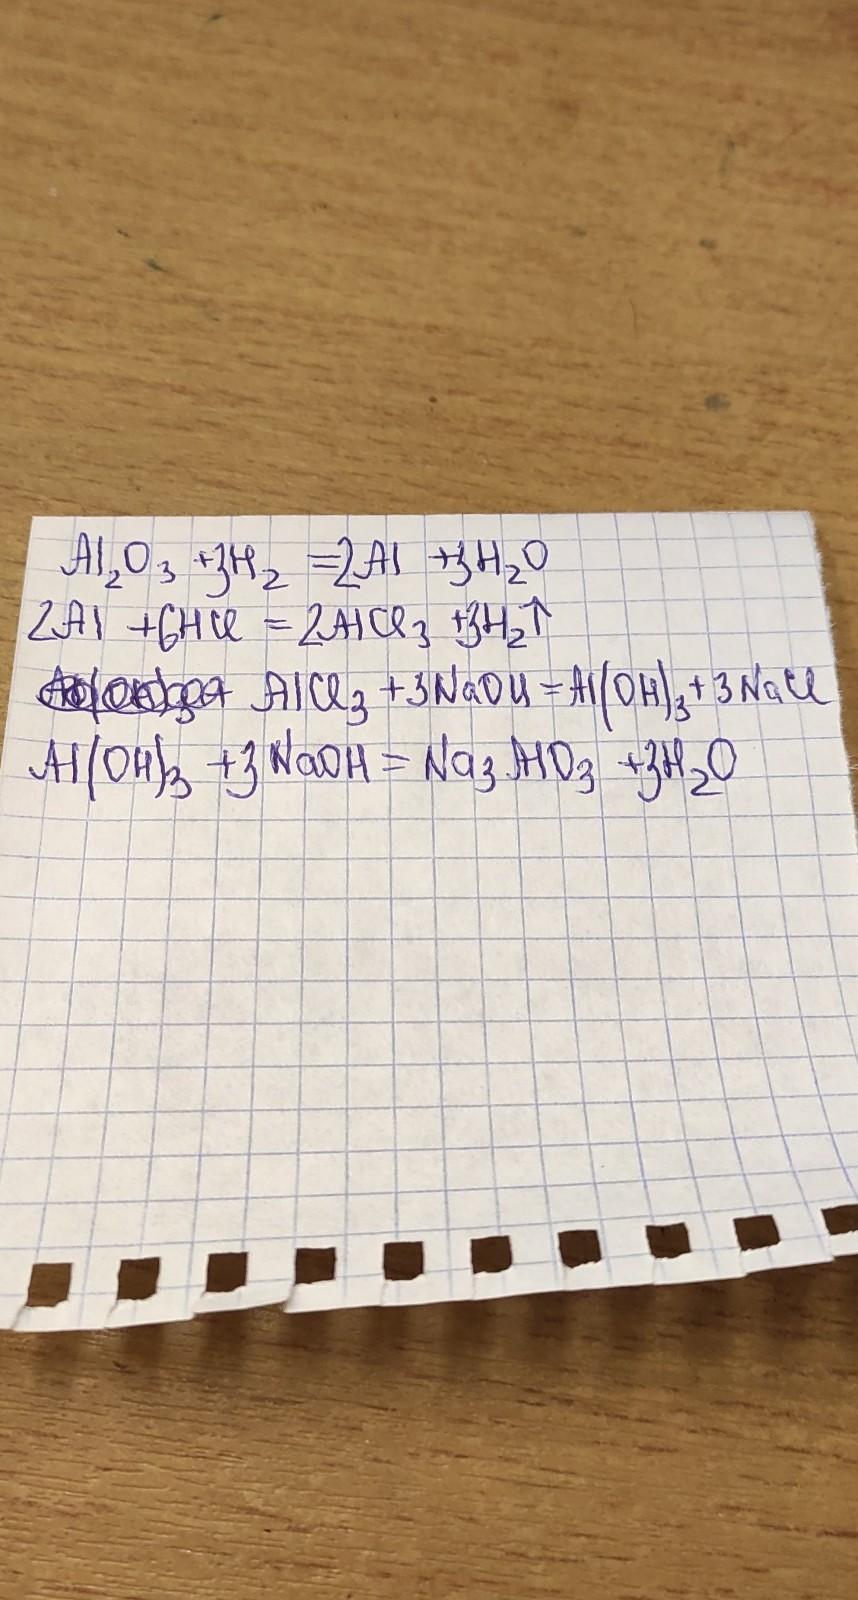 Al₂O₃ +3H₂ =2Al +3H₂O
2Al +6HCl = 2AlCl₃ +3H₂↑
AlCl₃ +3NaOH = Al(OH)₃ + 3NaCl
Al(OH)₃ +3NaOH = Na₃AlO₃ +3H₂O